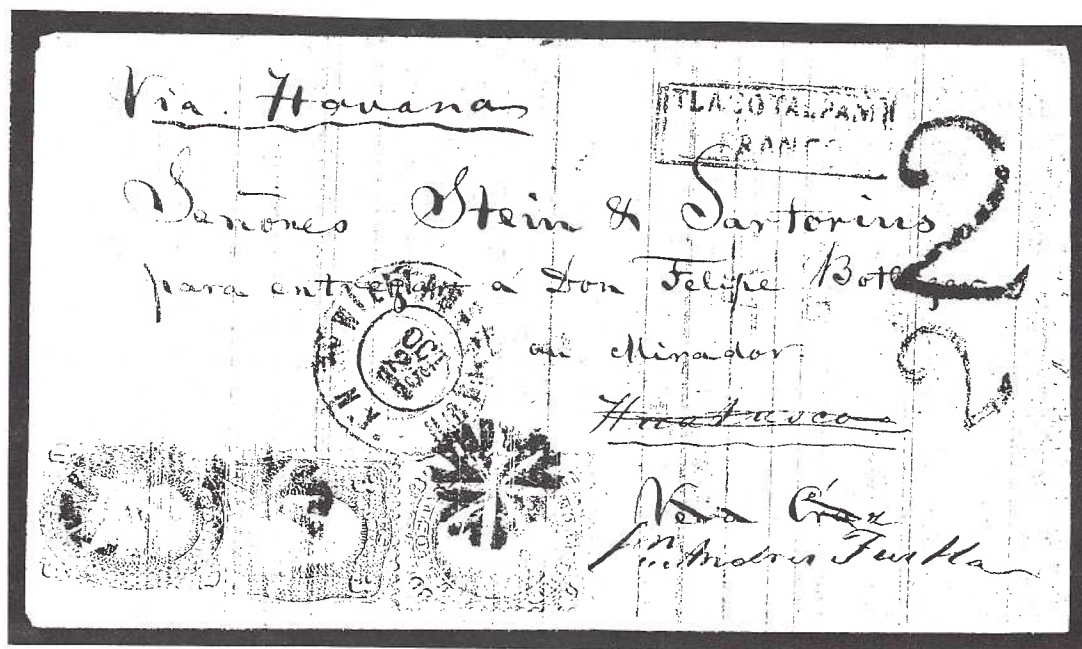 Via. Havana
TLACOTALPAM
FRANCO
2
Señores Stein & Sartorius
para entregar à Don Felipe
2
au Mirador
OCT
Huatusco
Vera Cruz
Sn. Andres Tuxtla